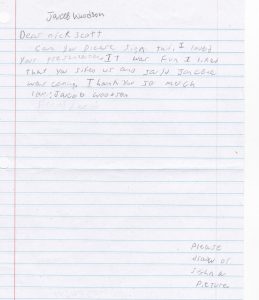 Jacob Woodson
Dear nick scott
can you please sign this, I loved
your presentation It was fun I liked
that you us and said
was coming, I thank you so much
Jacob Woodson
Please
draw or
sign a
picture